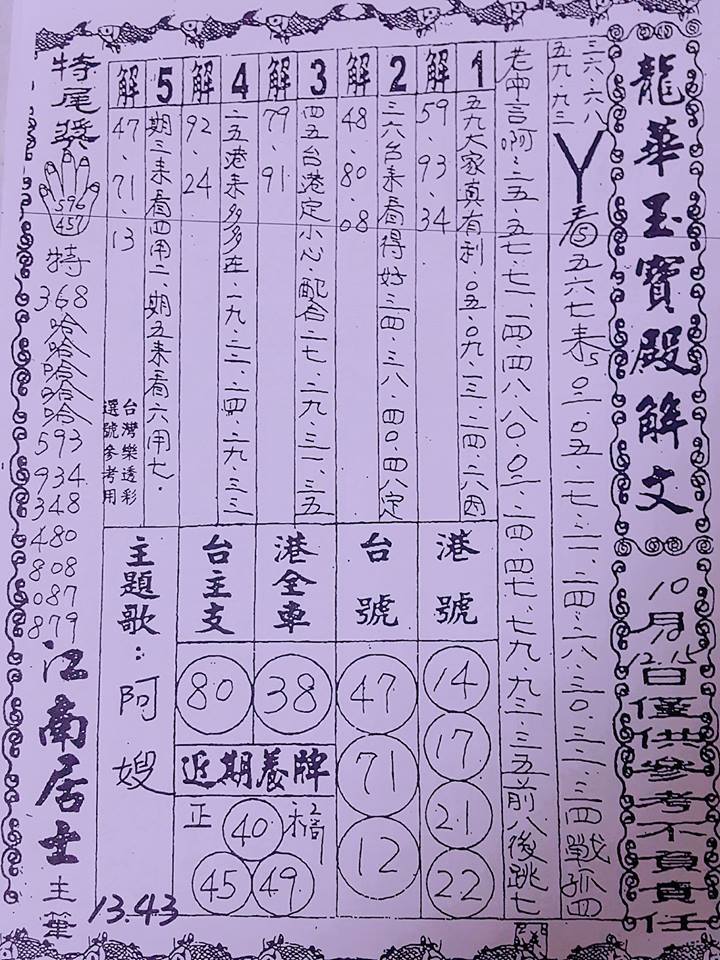 龍華玉寶殿解文
10月12.15日僅供參考不負責任
三六.六八
五九.九三
Y看五六七来5〇三.〇五.一七.二一.二四.二八.三〇.三二.三四戰孤四
老師言啊:二五.五七.七二.二四.四八.八〇.〇二.二四.四七.七九.九三.三五前八後跳七
1
五九大家真有利.〇五.〇九.一三.二四.二六因
解
59.93.34
2
三六台来看得好三四.三八.四〇.四八定
解
48.80.08
3
四五台港定小心.配合二七.二九.三一.三五
解
79.91
4
二五港来多多在.一九.二二.二四.二九.三三
解
92.24
5
期三来看四用二.期五来看六用七.
解
47.71.13
台灣樂透彩
選號參考用
港號
14
17
21
22
台號
47
71
12
港全車
38
台主支
80
近期養牌
正
40
45
49
主題歌:阿嫂
13.43
特尾獎
596
457
特
368
哈哈哈哈哈
593
934
348
480
808
087
879
江南居士主筆